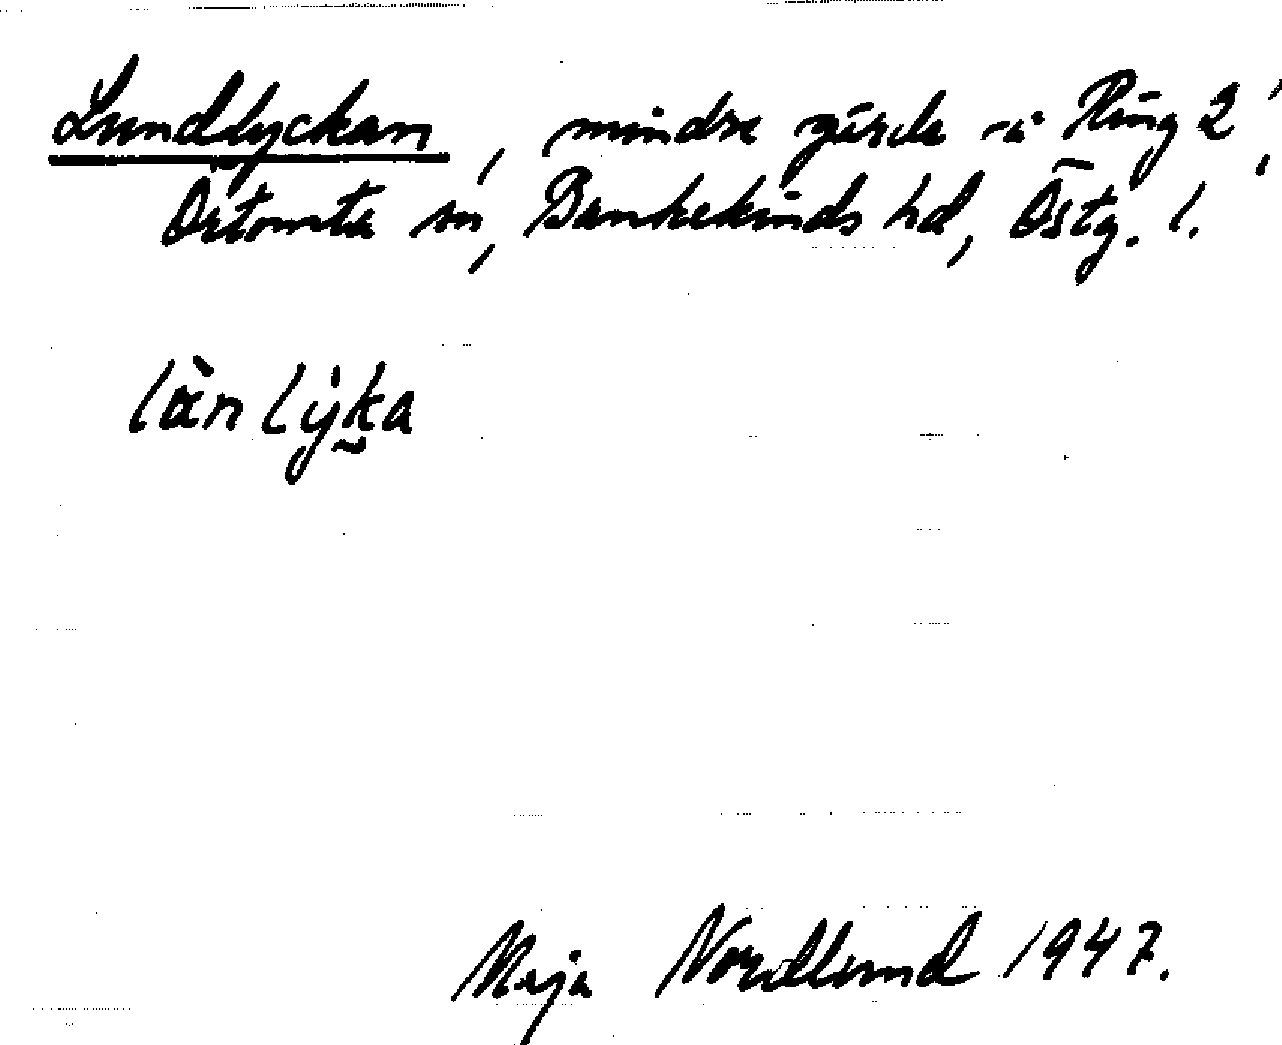 Lundlyckan, mindre gärde å Ring 2',
Örtomta sn, Bankekinds hd, Östg. l.
Maja Nordlund 1947.